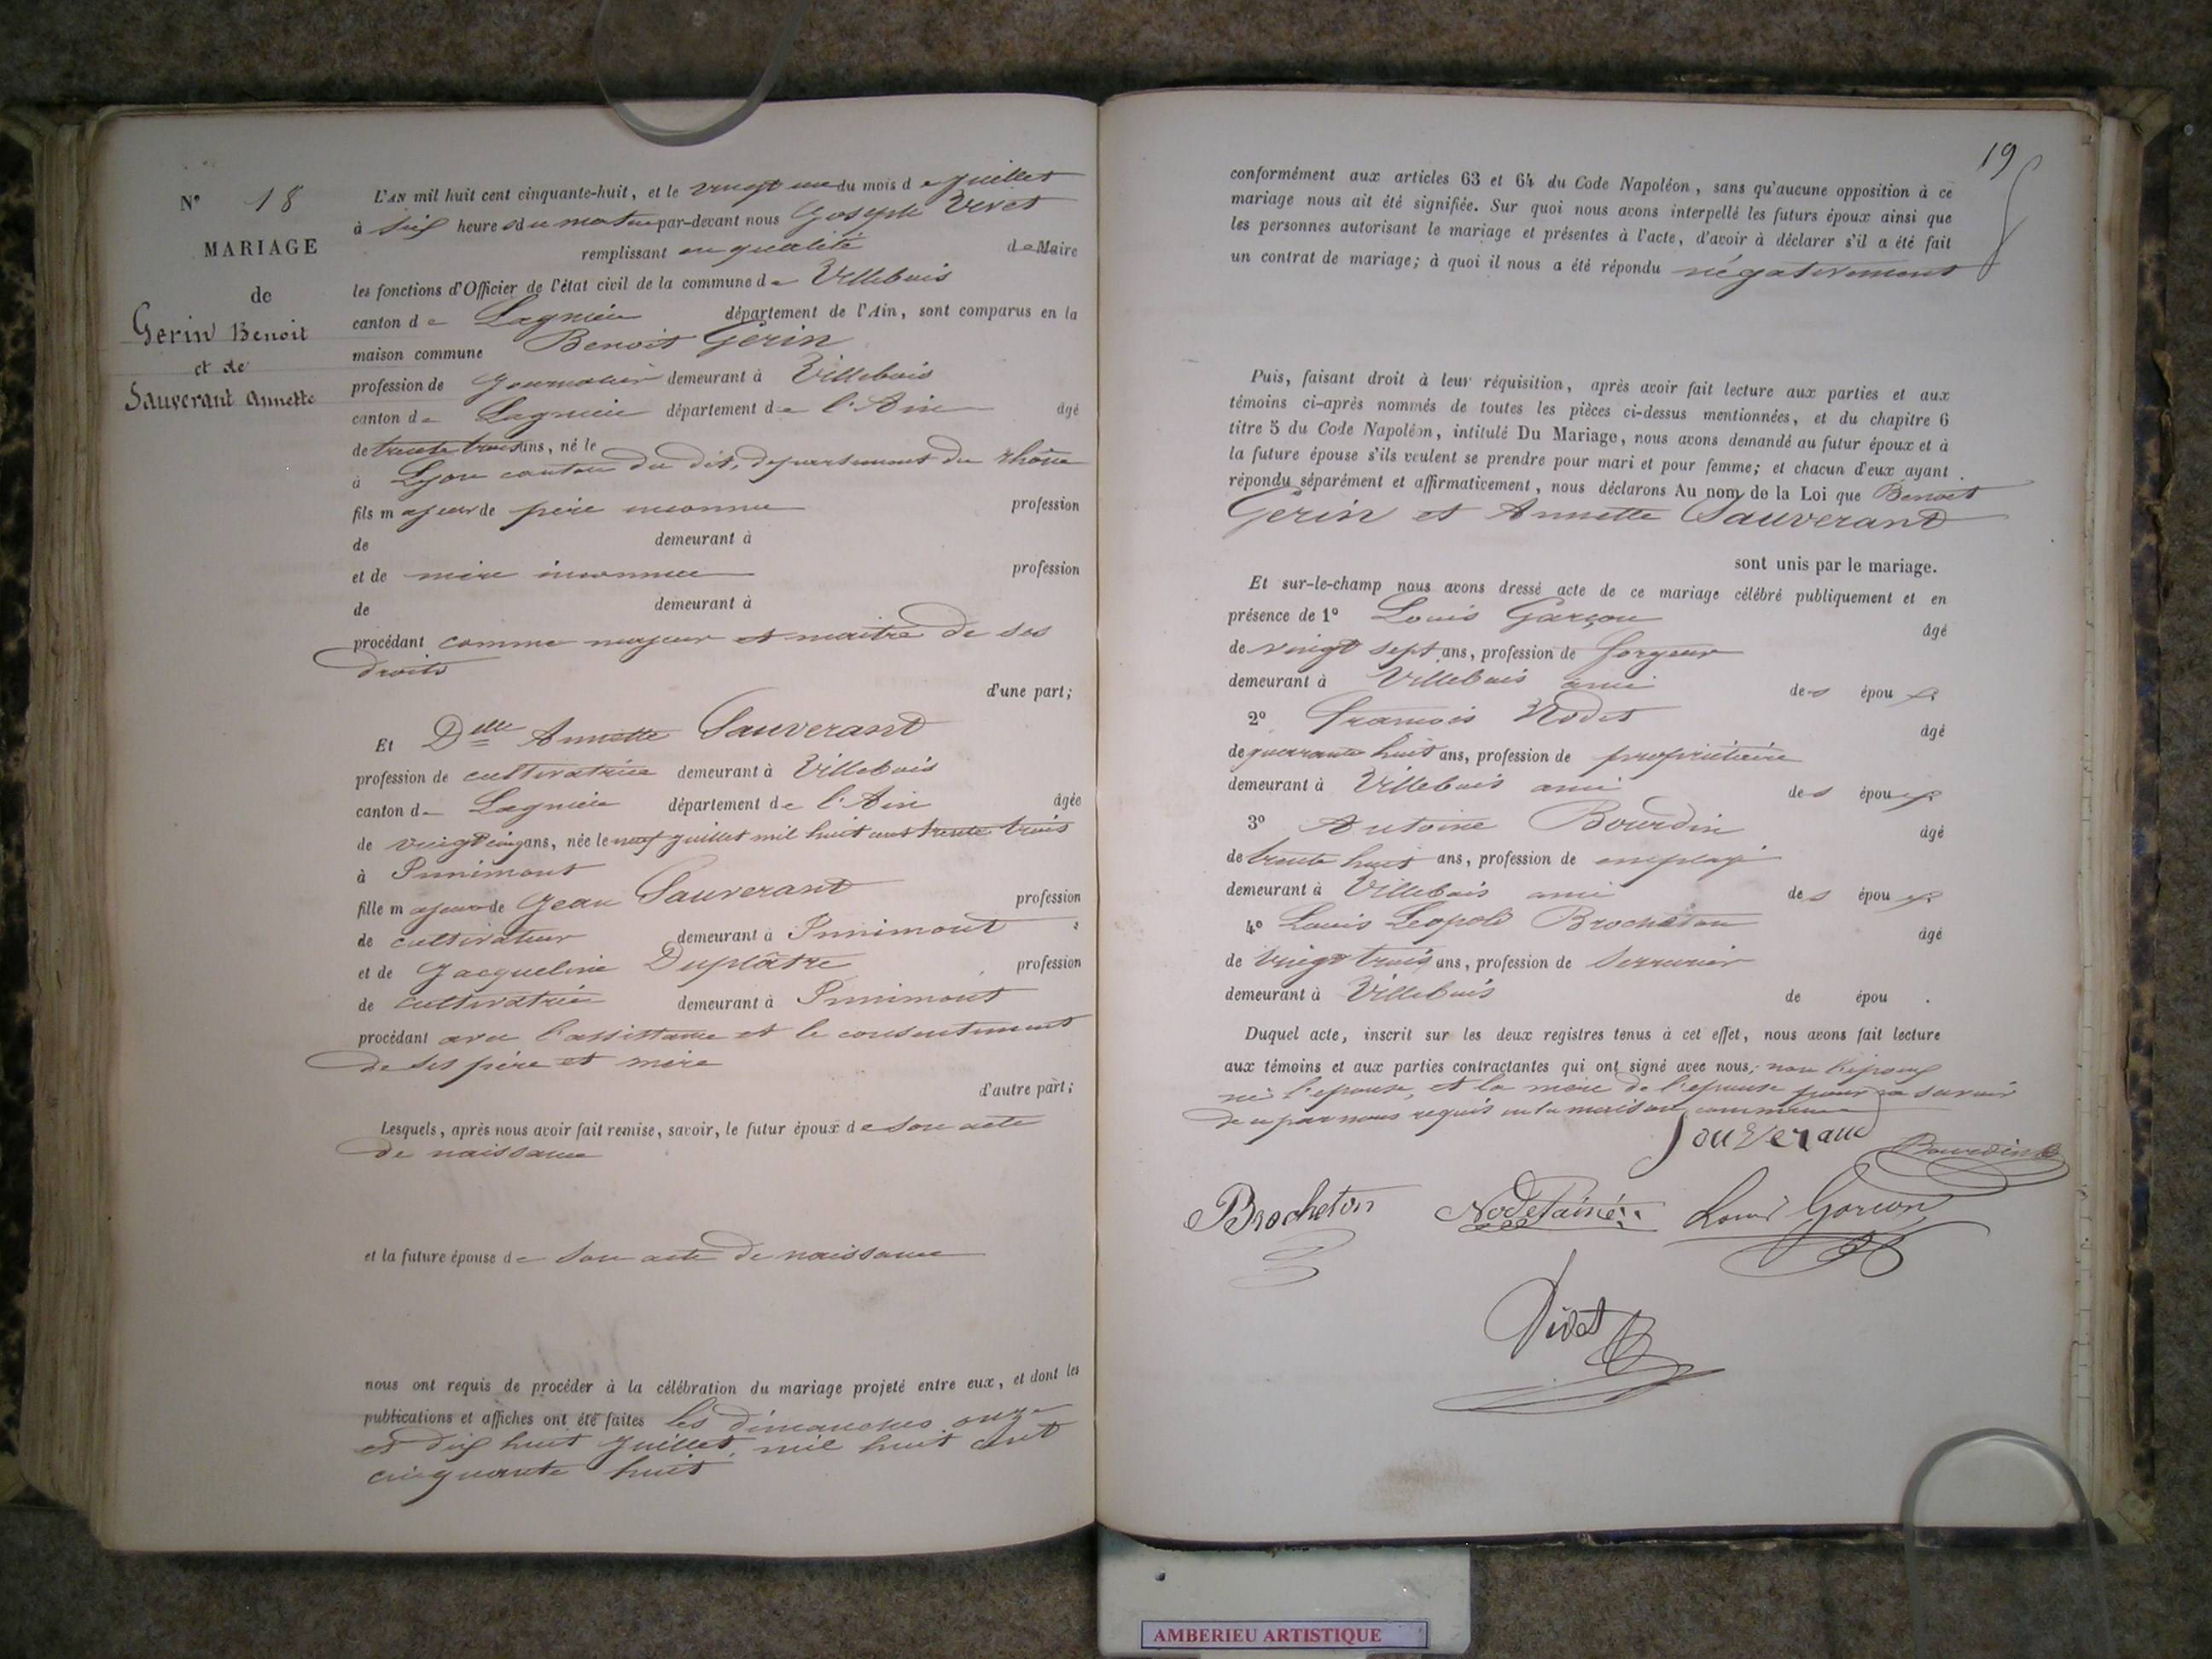 N° 18
MARIAGE
de
Gerin Benoit
et de
Sauverant Annette
L'AN mil huit cent cinquante-huit, et le vingt un du mois de Juillet
à six heures du matin par-devant nous Joseph Vivet
remplissant en qualité de Maire
les fonctions d'Officier de l'état civil de la commune de Villebois
canton de Lagnieu département de l'Ain, sont comparus en la
maison commune Benoit Gerin
profession de Journalier demeurant à Villebois
canton de Lagnieu département de l'Ain âgé
de trente trois ans, né le
à Lyon canton du dit, departement du rhône
fils majeur de père inconnu profession
de demeurant à
et de mère inconnue profession
de demeurant à
procédant comme majeur et maitre de ses
droits
d'une part;
Et Delle Annette Sauverant
profession de cultivatrice demeurant à Villebois
canton de Lagnieu département de l'Ain âgée
de vingt cinq ans, née le neuf juillet mil huit cent trente trois
à Innimont
fille majeure de Jean Sauverant profession
de cultivateur demeurant à Innimont
et de Jacqueline Duplâtre profession
de cultivatrice demeurant à Innimont
procédant avec l'assistance et le consentement
de ses père et mère
d'autre part;
Lesquels, après nous avoir fait remise, savoir, le futur époux de son acte
de naissance
et la future épouse de son acte de naissance
nous ont requis de procéder à la célébration du mariage projeté entre eux, et dont les
publications et affiches ont été faites les dimanches onze
et dix huit Juillet, mil huit cent
cinquante huit
19
conformément aux articles 63 et 64 du Code Napoléon, sans qu'aucune opposition à ce
mariage nous ait été signifiée. Sur quoi nous avons interpellé les futurs époux ainsi que
les personnes autorisant le mariage et présentes à l'acte, d'avoir à déclarer s'il a été fait
un contrat de mariage; à quoi il nous a été répondu négativement
Puis, faisant droit à leur réquisition, après avoir fait lecture aux parties et aux
témoins ci-après nommés de toutes les pièces ci-dessus mentionnées, et du chapitre 6
titre 5 du Code Napoléon, intitulé Du Mariage, nous avons demandé au futur époux et à
la future épouse s'ils veulent se prendre pour mari et pour femme; et chacun d'eux ayant
répondu séparément et affirmativement, nous déclarons Au nom de la Loi que Benoit
Gerin et Annette Sauverant
sont unis par le mariage.
Et sur-le-champ nous avons dressé acte de ce mariage célébré publiquement et en
présence de 1° Louis Garçon âgé
de vingt sept ans, profession de forgeur
demeurant à Villebois ami des époux
2° francois Nodet âgé
de quarante huit ans, profession de propriétaire
demeurant à Villebois ami des époux
3° Antoine Bourdin âgé
de trente huit ans, profession de employé
demeurant à Villebois ami des époux
4° Louis Leopold Brocheton âgé
de vingt trois ans, profession de serrurier
demeurant à Villebois de épou .
Duquel acte, inscrit sur les deux registres tenus à cet effet, nous avons fait lecture
aux témoins et aux parties contractantes qui ont signé avec nous, non l'époux
ni l'epouse, et la mère de l'epouse pour ne savoir
de ce par nous requis en la maison commune
Souverand Bourdin
Brocheton Nodet ainé Louis Garcon
Vivet
AMBERIEU ARTISTIQUE